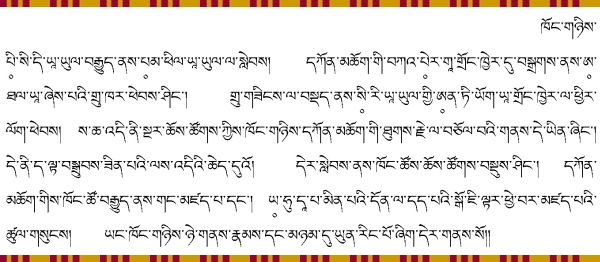 ཁོང་གཉིས་
པི་སི་དི་ཡཱ་ཡུལ་བརྒྱུད་ནས་པམ་ཕིལ་ཡཱ་ཡུལ་ལ་སླེབས། དཀོན་མཆོག་གི་བཀའ་པེར་གཱ་གྲོང་ཁྱེར་དུ་བསྒྲགས་ནས་ཨ་
ཐལ་ཡཱ་ཞེས་པའི་གྲུ་ཁར་ཕེབས་ཤིང་། གྲུ་གཟིངས་ལ་བསྡད་ནས་སི་རི་ཡཱ་ཡུལ་གྱི་ཨན་ཏི་ཡོག་ཡཱ་གྲོང་ཁྱེར་ལ་ཕྱིར་
ལོག་ཕེབས། ས་ཆ་འདི་ནི་སྔར་ཆོས་ཚོགས་ཀྱིས་ཁོང་གཉིས་དཀོན་མཆོག་གི་ཐུགས་རྗེ་ལ་བཅོལ་བའི་གནས་དེ་ཡིན་ཞིང་།
དེ་ནི་ད་ལྟ་བསྒྲུབས་ཟིན་པའི་ལས་འདིའི་ཆེད་དུའོ། དེར་སླེབས་ནས་ཁོང་ཚོས་ཆོས་ཚོགས་བསྡུས་ཤིང་། དཀོན་
མཆོག་གིས་ཁོང་ཚོ་བརྒྱུད་ནས་གང་མཛད་པ་དང་། ཡ་ཧུ་དཱ་པ་མིན་པའི་དོན་ལ་དད་པའི་སྒོ་ཇི་ལྟར་ཕྱེ་བར་མཛད་པའི་
ཚུལ་གསུངས། ཡང་ཁོང་གཉིས་ཉེ་གནས་རྣམས་དང་མཉམ་དུ་ཡུན་རིང་པོ་ཞིག་དེར་གནས་སོ།།